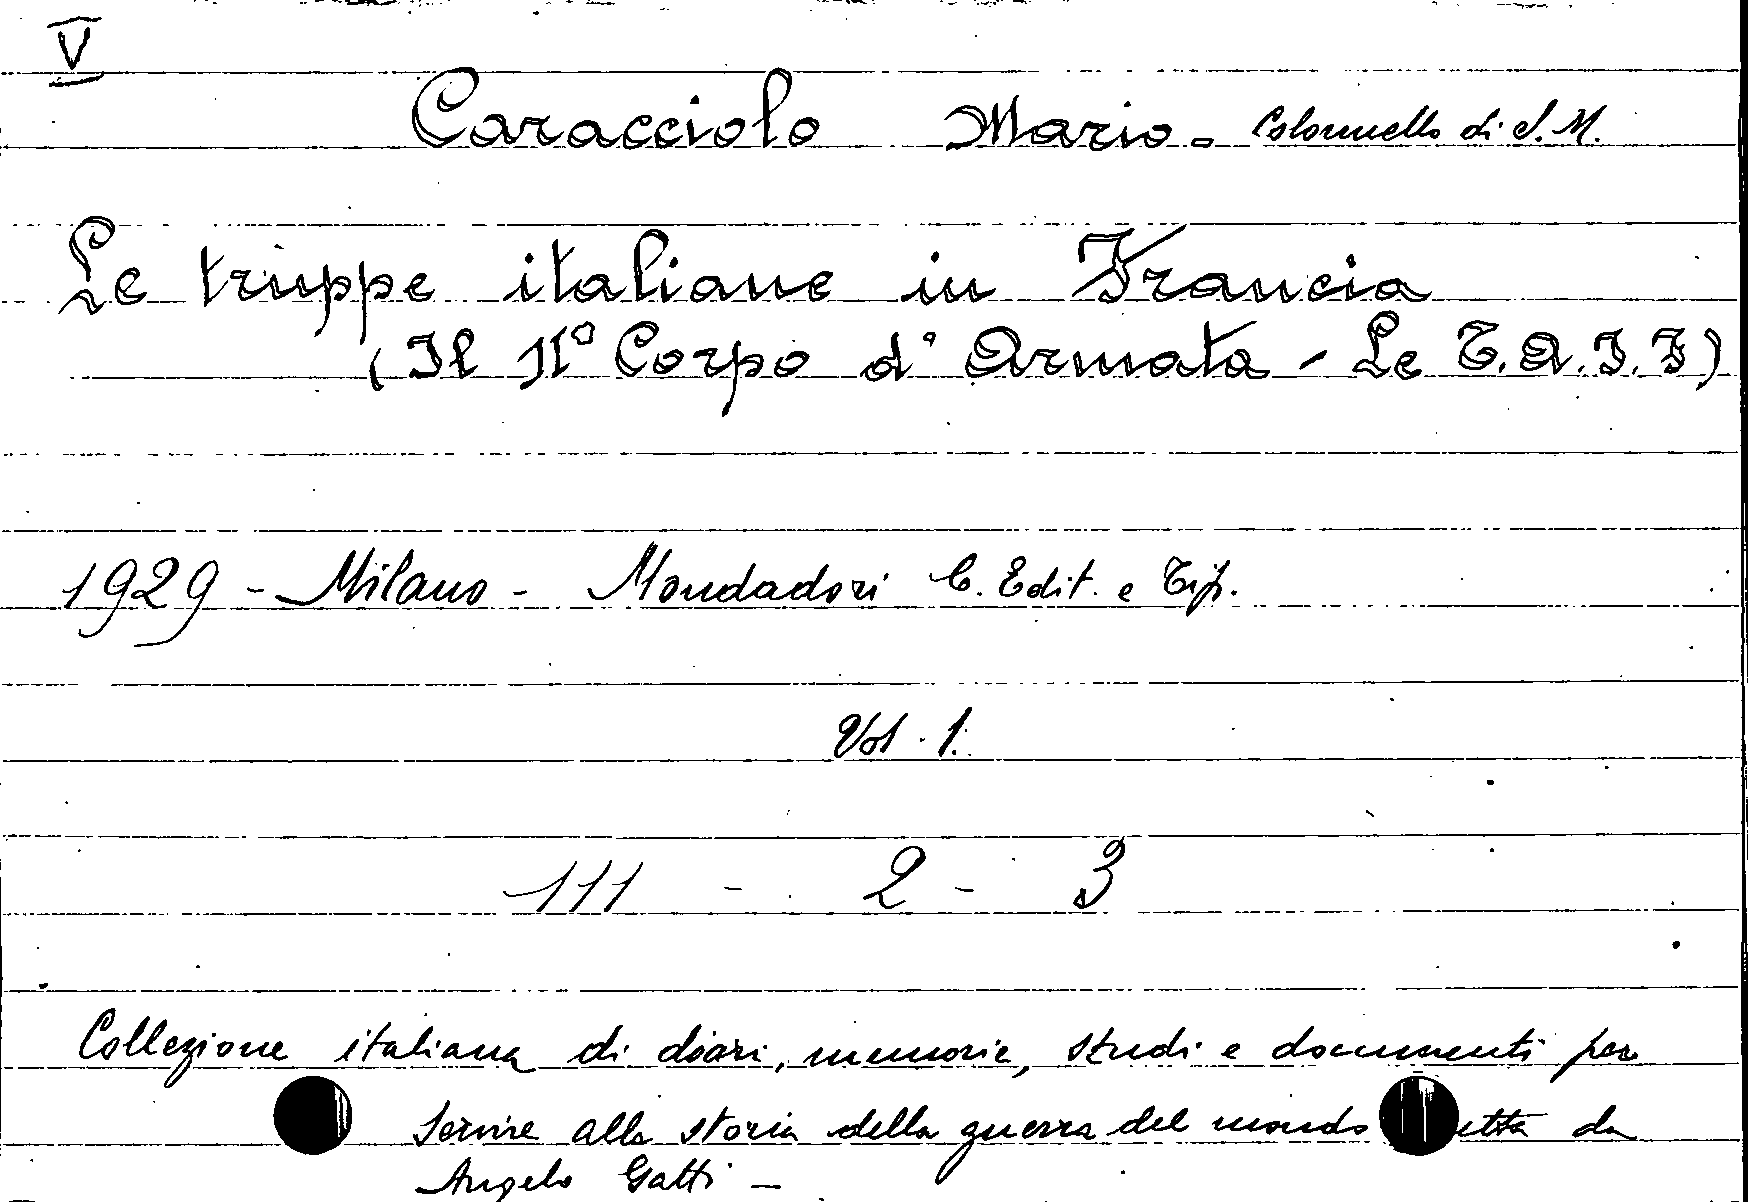 V
Caracciolo Mario - Colonnello di S. M.
Le truppe italiane in Francia
(Il II° Corpo d'Armata - Le T.A.I.F)
1929 - Milano - Mondadori C. Edit. e Tip.
Vol. 1.
111 - 2 - 3
Collezione italiana di diari, memorie, studi e documenti per
servire alla storia della guerra del mondo da
Angelo Gatti -